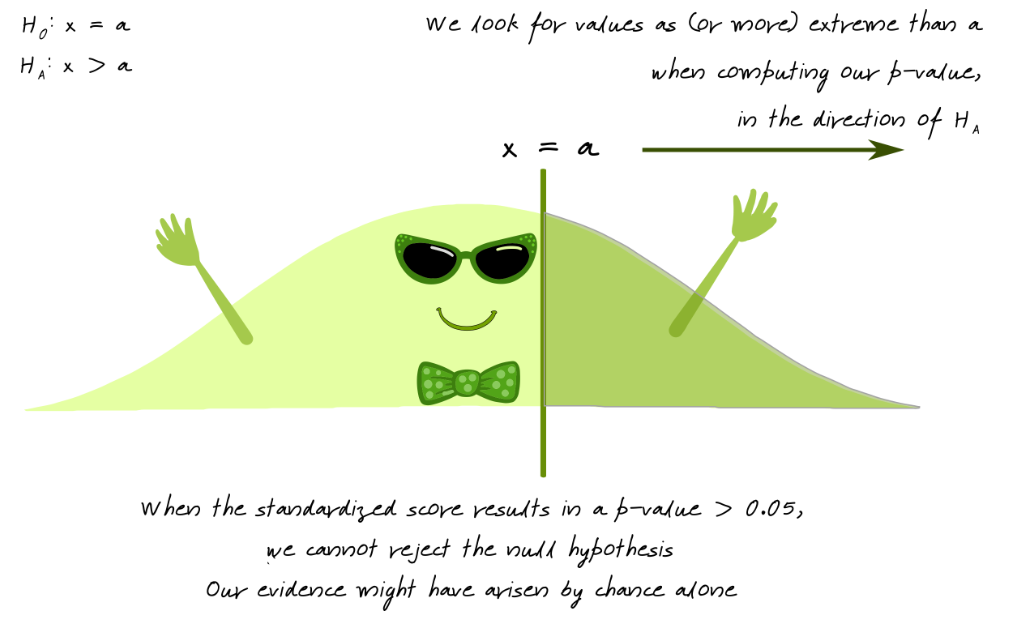 H₀: x = a
H_A: x > a
We look for values as (or more) extreme than a
when computing our p-value,
in the direction of H_A
x = a
When the standardized score results in a p-value > 0.05,
we cannot reject the null hypothesis
Our evidence might have arisen by chance alone